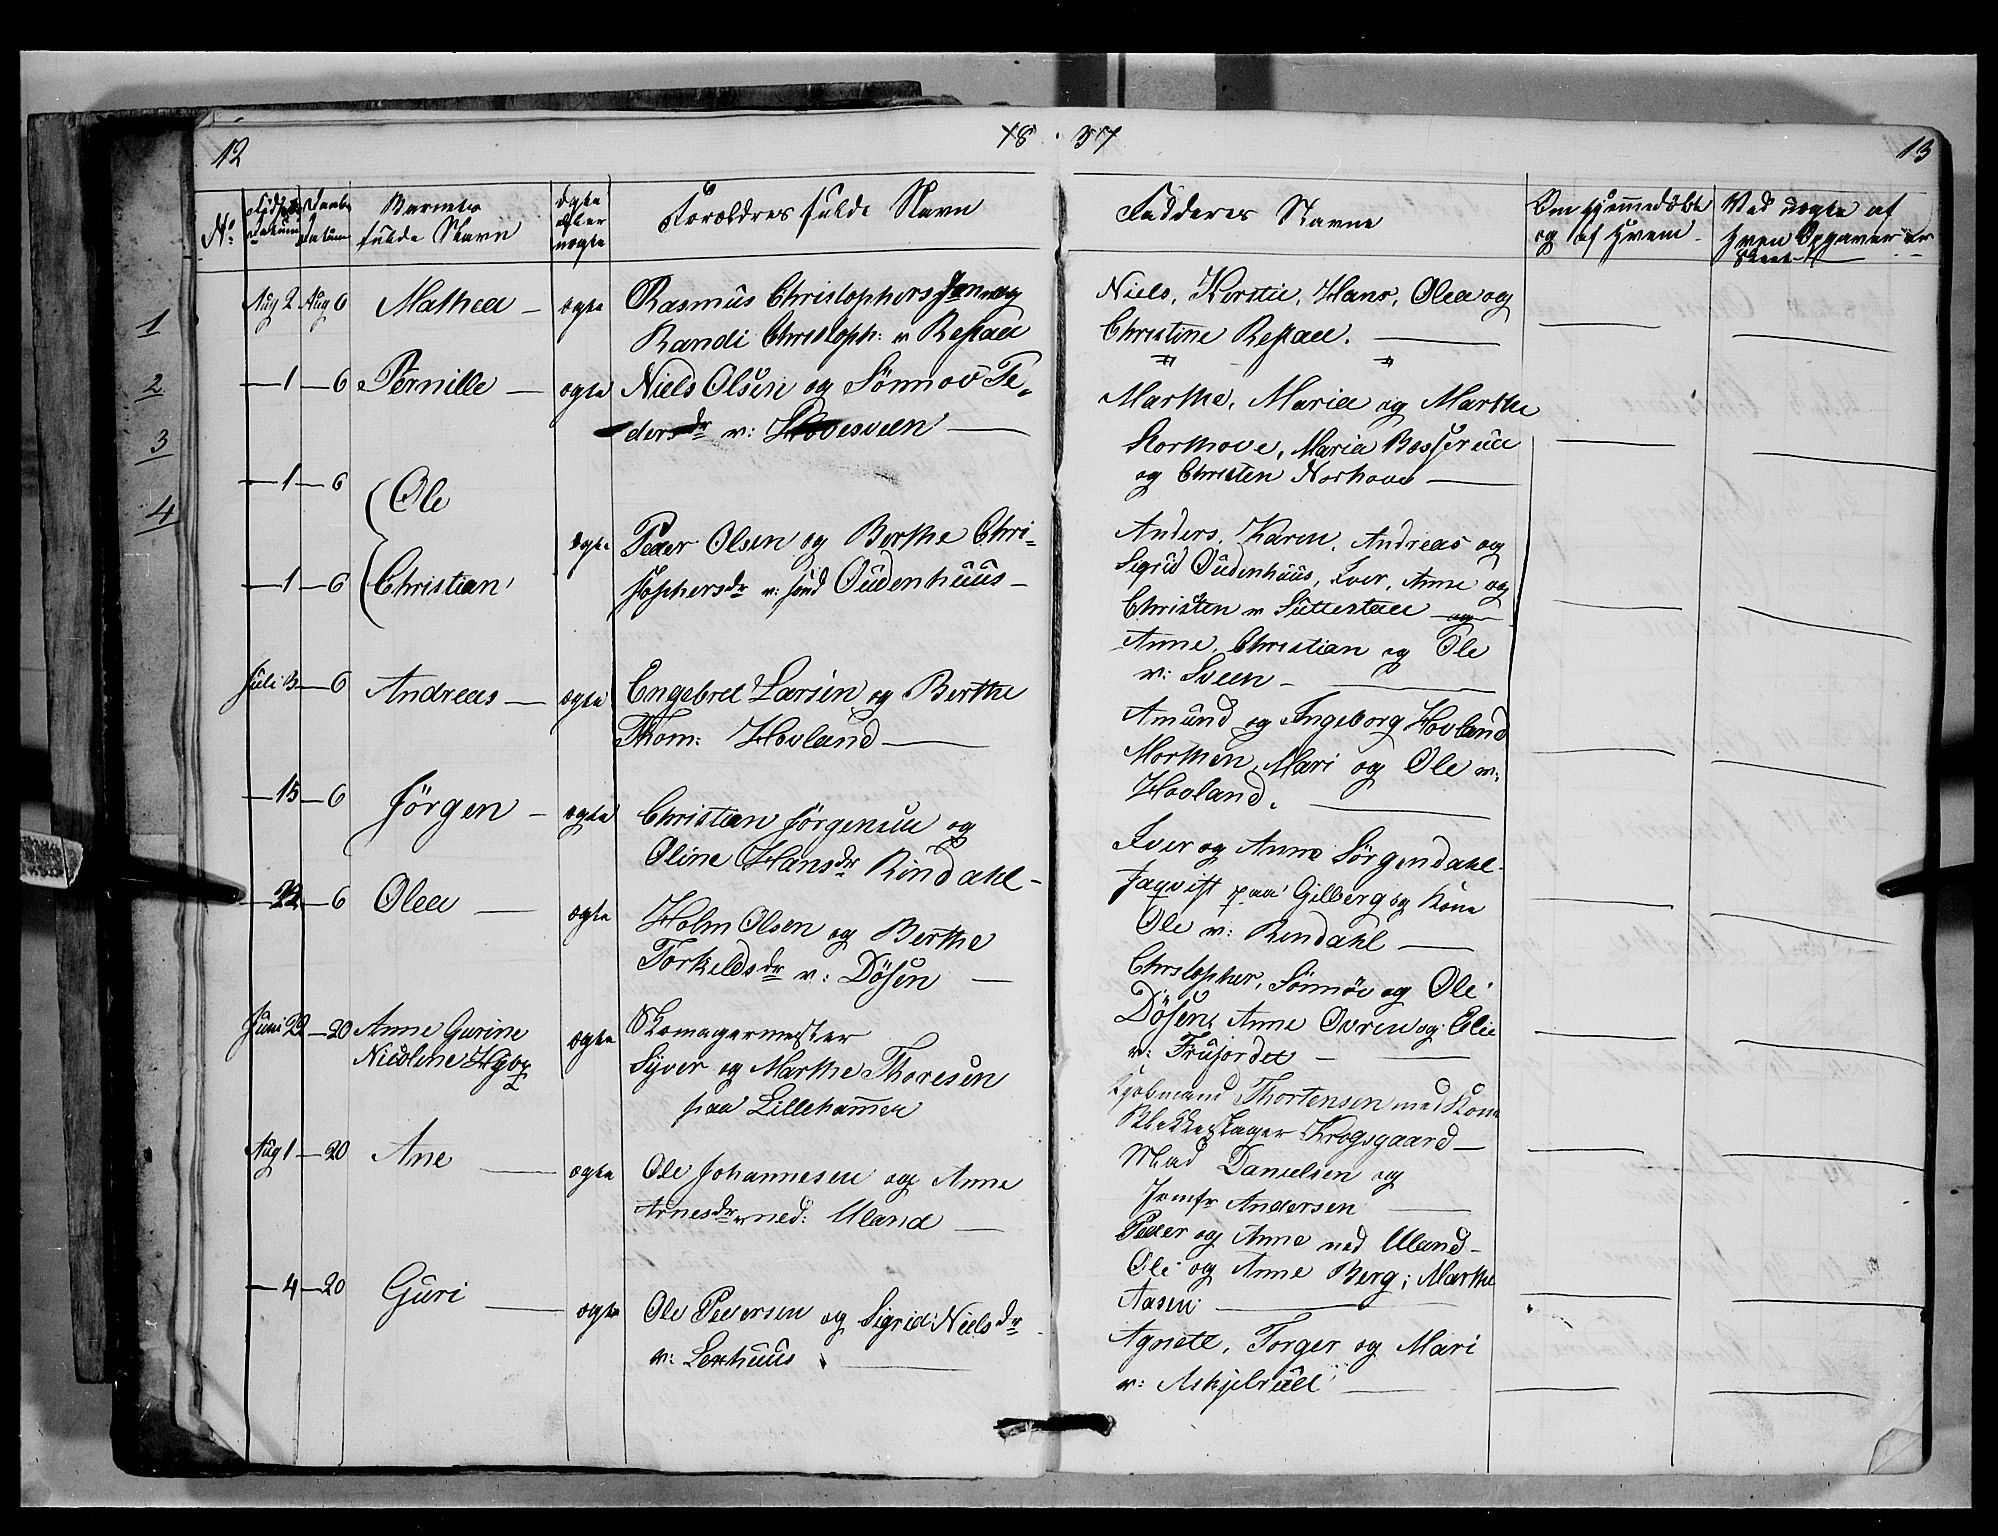 12
18 37
13
No
Datum
Datum
Barnets
fulde Navn
ægte
eller
uægte
Forældres fulde Navn
Fadderes Navne
Om hjemmedøbt
og af hvem
Ved nogle af
1
2
3
4
Aug 2 Aug 6 Mathea — ægte Rasmus Christophers og
Randi Christoph: v
— 1 — 6 Pernille — ægte Niels Olsen og Sønnov Pe-
dersdr v: —
— 1 — 6 Ole
ægte Peder Olsen og Berthe Chri-
— 1 — 6 Christian
stophersdr v: Oudenhuus —
Juli 3 — 6 Andreas — ægte Engebret Larsen og Berthe
Thom: Hovland —
— 15 — 6 Jörgen — ægte Christian Jörgensen og
Oline Hansdr Rindahl —
— 22 — 6 Olea — ægte Holm Olsen og Berthe
Torkeldsdr v: Dösen —
Juni 22 — 20 Anne Gurine ægte Skomagermester
Nicoline
Syver og Marthe Thoresen
paa Lillehamer
Aug 1 — 20 Ane — ægte Ole Johannesen og Anne
Arnesdr ned: Uland —
— 4 — 20 Guri — ægte Ole Pedersen og Sigrid Nielsdr
v: —
Niels, Kerstie, Hans, Olea og
Christine —
Marthe, Maria og Marthe
Maria
og Christen Norhove —
Anders, Karen, Andreas og
Sigrid Oudenhuus, Iver, Anne og
Christen v
Anne, Christian og Ole
v: Sveen —
Amund og Ingeborg Hovland
Morthen, Mari og Ole v:
Hovland. —
Iver og Anne Sörgendahl
paa Gilberg og Kone
Ole v: Rindahl —
Christopher, Sönnöv og Ole
Dösen, Anne og Elie
v: —
Kjøbmand Thortensen med Kone
Krogsgaard —
Mad Danielsen og
Jomfr Andersen —
Peder og Anne ned Uland —
Ole og Anne Berg; Marthe
Aasen —
Agnete, Torger og Mari
v: Askjelrud —